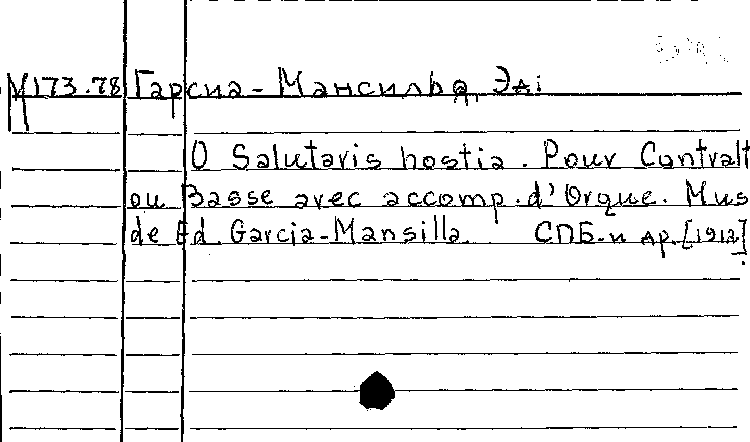 М173.78 Гарсиа-Мансилья, Эд.
O Salutaris hostia. Pour Contralt
ou Basse avec accomp. d'Orgue. Mus
de Ed. Garcia-Mansilla. СПБ. и др. [1912]